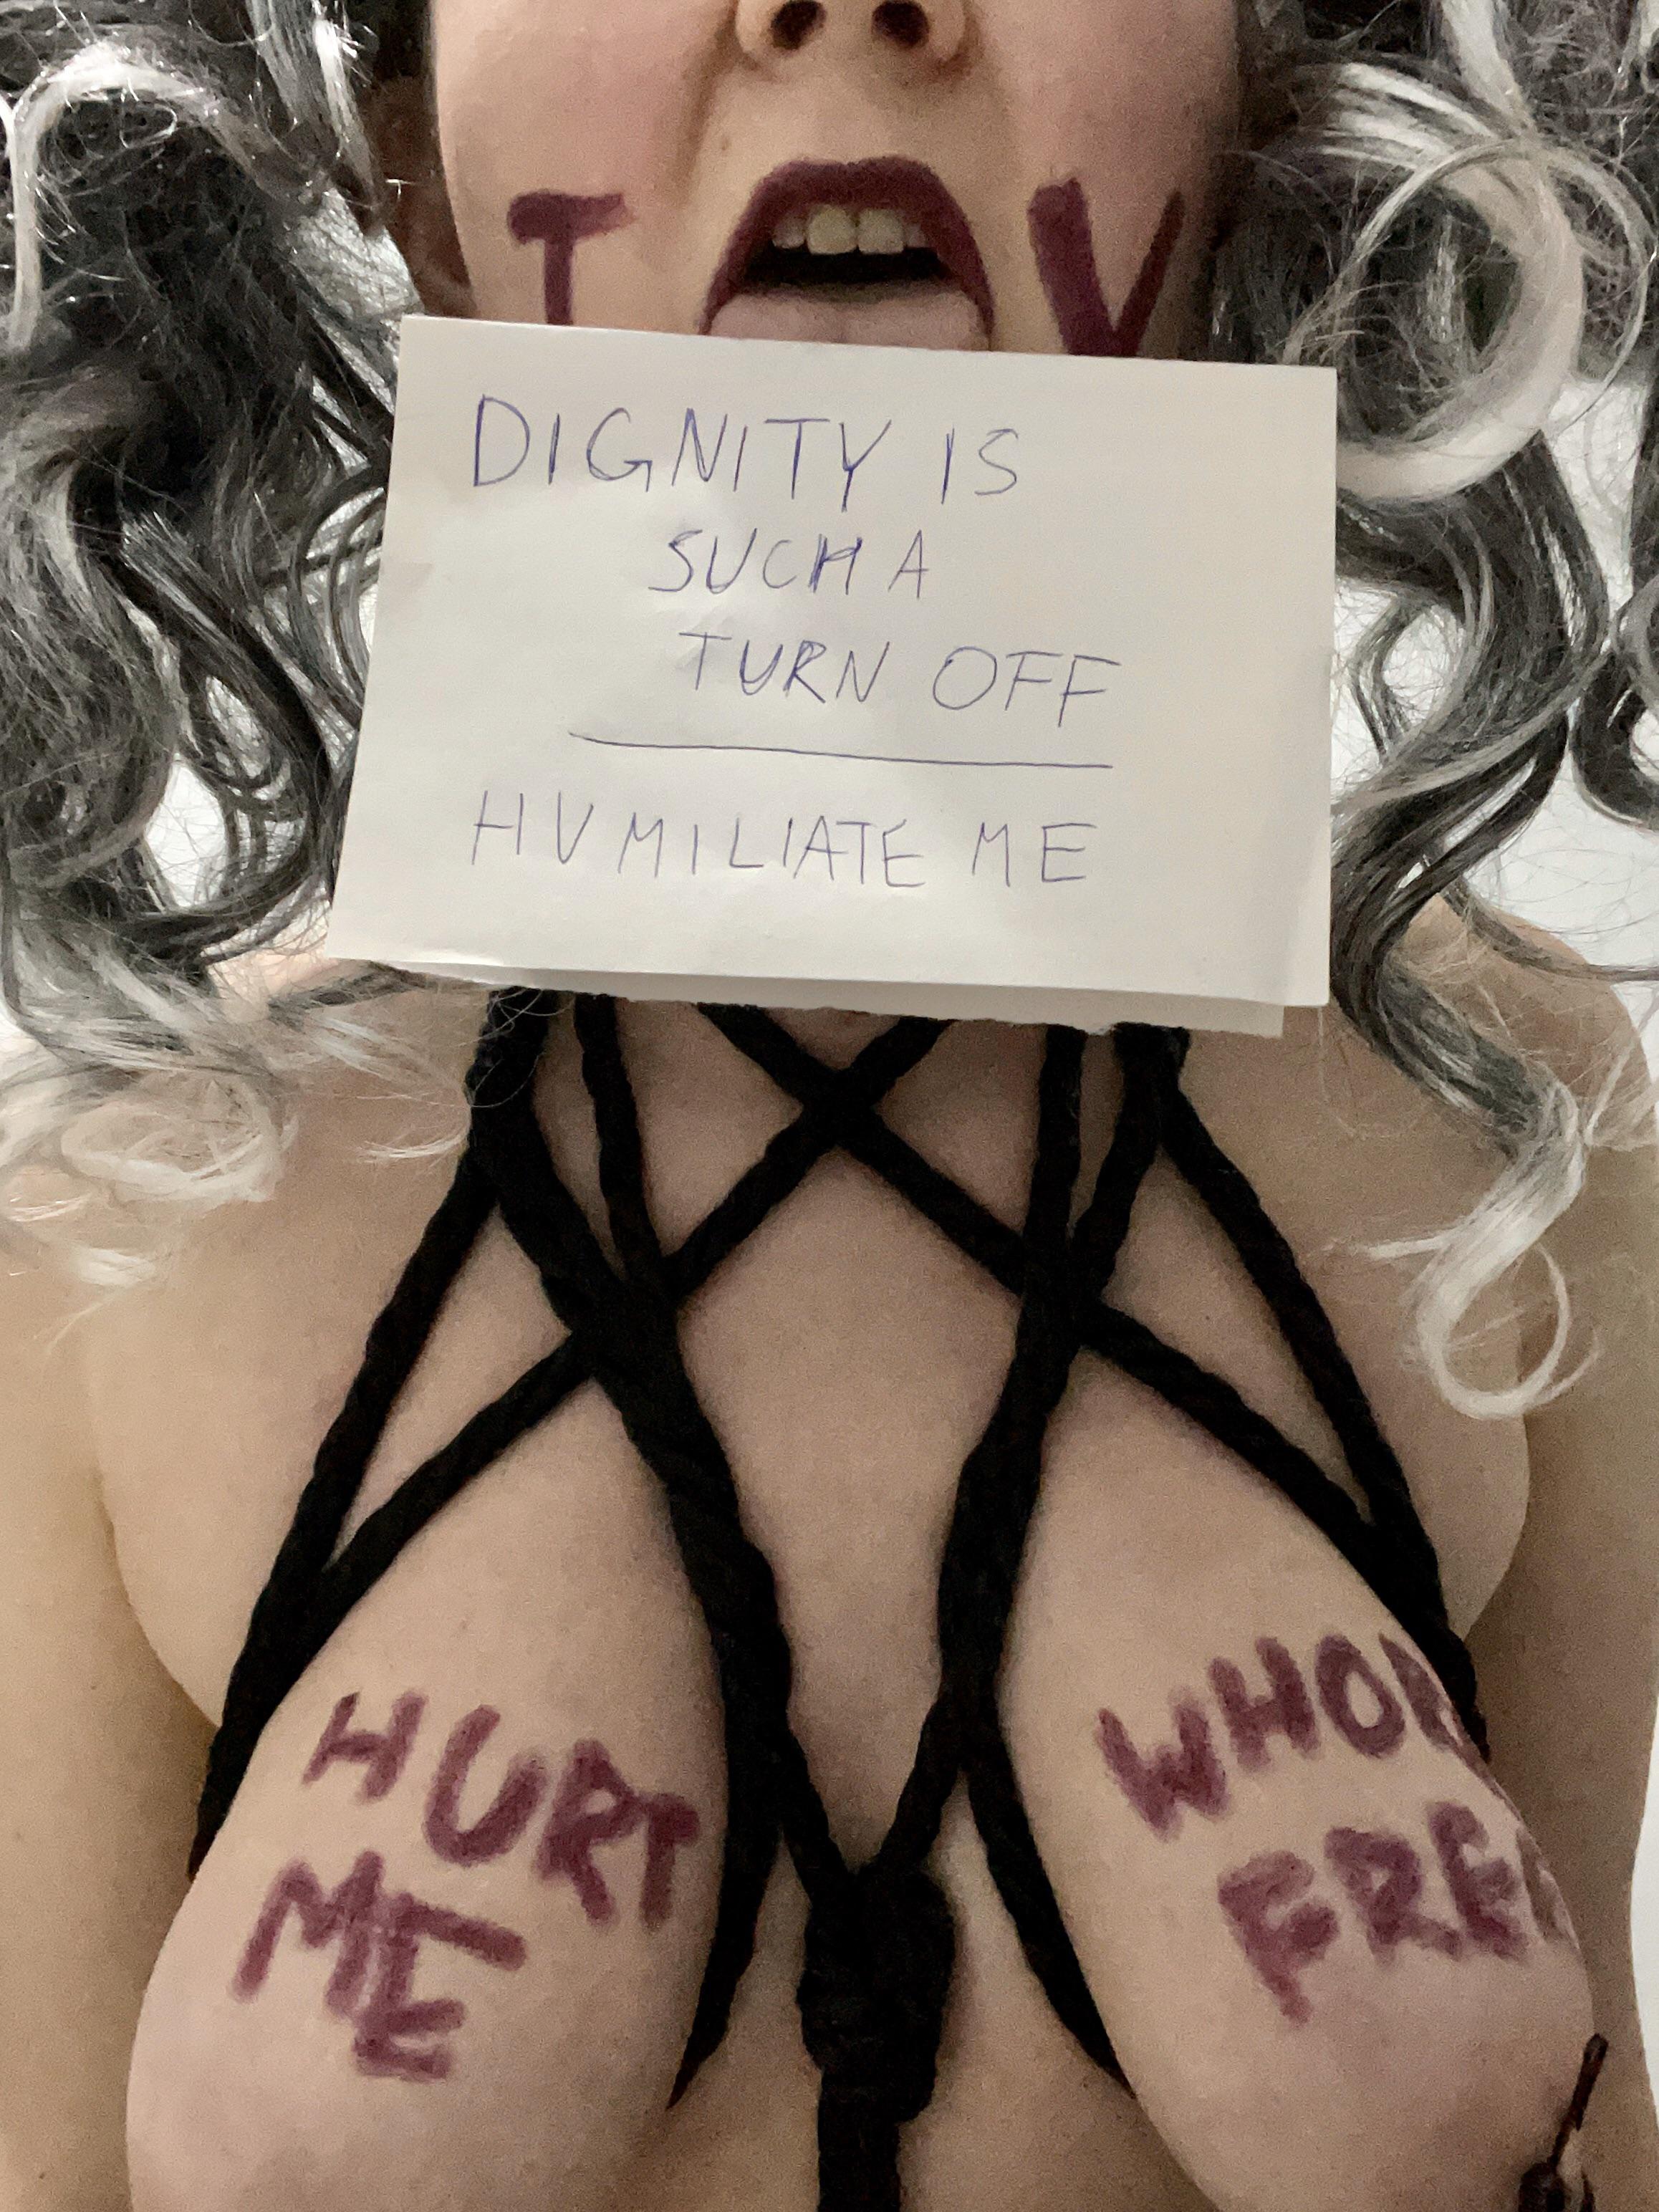 T V
DIGNITY IS
SUCH A
TURN OFF
HUMILIATE ME
HURT
ME